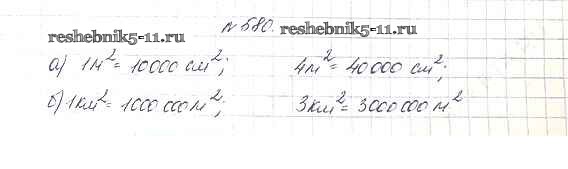 №580.
reshebnik5-11.ru reshebnik5-11.ru
а) 1м²= 10000 см²; 4м²= 40000 см²;
б) 1км²= 1000 000м²; 3км²= 3000 000 м²